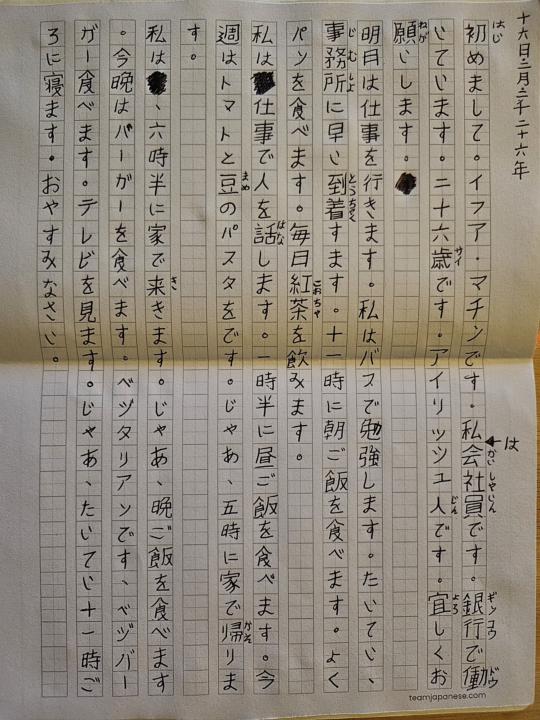 十六日・二月・二千二十六年
はじ
初めまして。イファ・マチンです・私会社員です。銀行で働
は
かいしゃじん
ギンコウ
ドウ
いています。二十六歳です・アイリッシュ人です。宜しくお
サイ
じん
よろ
願いします。
ねが
明日は仕事を行きます。私はバスで勉強します。たいてい、
事務所に早い到着すます。十一時に朝ご飯を食べます。よく
じむしょ
とうちゃく
パンを食べます。毎日紅茶を飲みます。
こおちゃ
私は仕事で人を話します。一時半に昼ご飯を食べます。今
はな
週はトマトと豆のパスタをです。じゃあ、五時に家で帰りま
まめ
かえ
す。
私は、六時半に家で来きます。じゃあ、晩ご飯を食べます
き
。今晩はバーガーを食べます。ベヅタリアンです、ベヅバー
ガー食べます。テレビを見ます。じゃあ、たいてい十一時ご
ろに寝ます。おやすみなさい。
teamjapanese.com